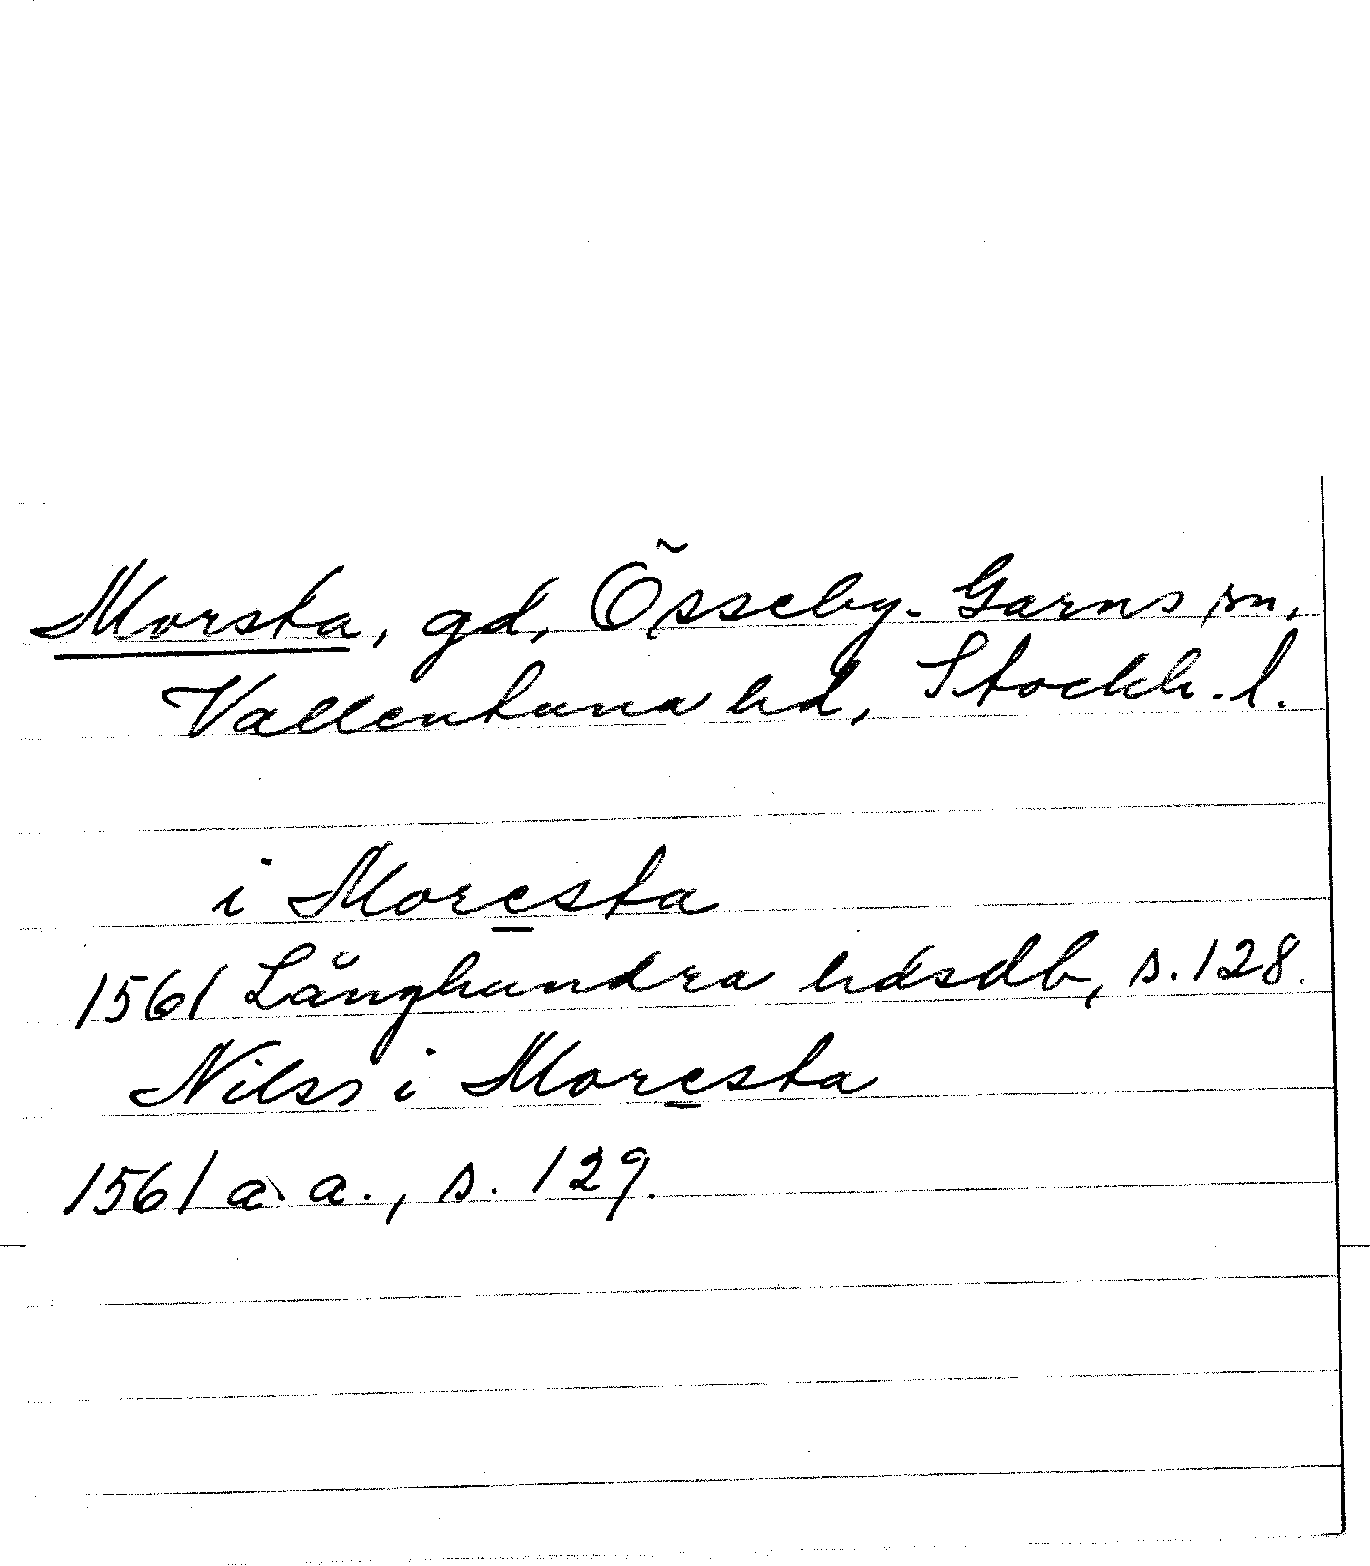 Morsta, gd, Össeby-Garns sn,
Vallentuna hd, Stockh. l.
i Moresta
1561 Långhundra hdsdb, s. 128.
Nilss i Moresta
1561 a. a., s. 129.